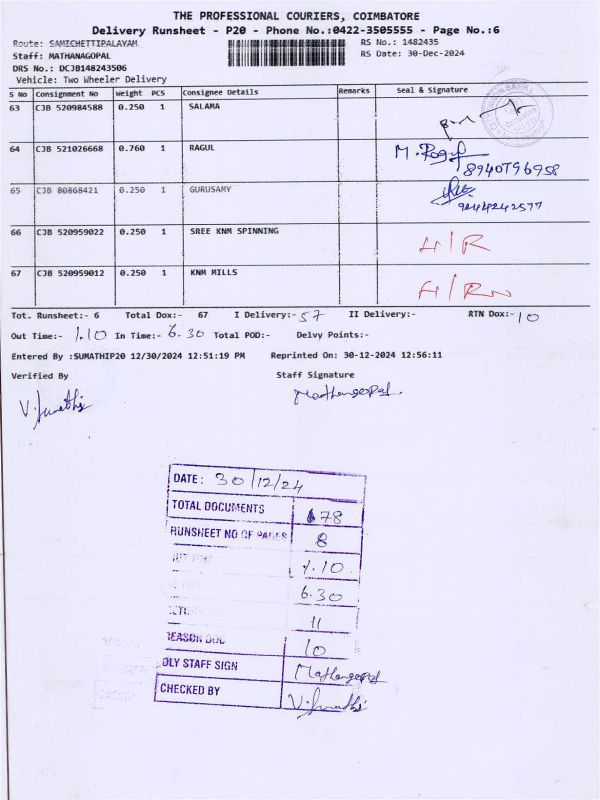 THE PROFESSIONAL COURIERS, COIMBATORE
Delivery Runsheet - P20 - Phone No.:0422-3505555 - Page No.:6
Route: SAMICHETTIPALAYAM RS No.: 1482435
Staff: MATHANAGOPAL RS Date: 30-Dec-2024
DRS No.: DCJB148243506
Vehicle: Two Wheeler Delivery
S No Consignment No Weight PCS Consignee Details Remarks Seal & Signature
63 CJB 520984588 0.250 1 SALAMA
64 CJB 521026668 0.760 1 RAGUL M. Ragul
8940796958
65 CJB 80868421 0.250 1 GURUSAMY
9444242577
66 CJB 520959022 0.250 1 SREE KNM SPINNING H/R
67 CJB 520959012 0.250 1 KNM MILLS
Tot. Runsheet:- 6 Total Dox:- 67 I Delivery:- 57 II Delivery:- RTN Dox:- 10
Out Time:- 1.10 In Time:- 6.30 Total POD:- Delvy Points:-
Entered By :SUMATHIP20 12/30/2024 12:51:19 PM Reprinted On: 30-12-2024 12:56:11
Verified By Staff Signature
V. Sumathi Mathangopal.
DATE: 30/12/24
TOTAL DOCUMENTS 78
RUNSHEET NO OF PAGES 8
1.10
6.30
11
REASON DOC 10
DLY STAFF SIGN Mathangopal
CHECKED BY V. Sumathi